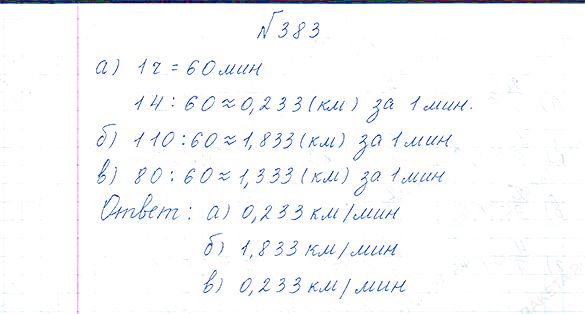 №383
а) 1ч = 60 мин
14 : 60 ≈ 0,233 (км) за 1 мин.
б) 110 : 60 ≈ 1,833 (км) за 1 мин
в) 80 : 60 ≈ 1,333 (км) за 1 мин
Ответ: а) 0,233 км/мин
б) 1,833 км/мин
в) 0,233 км/мин